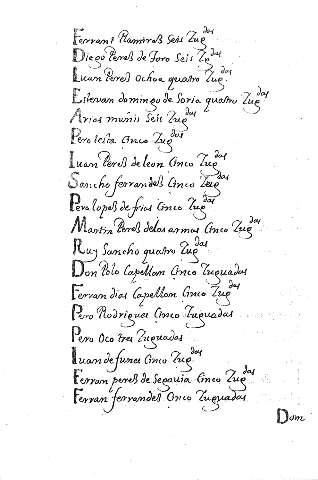 Ferrant Ramires seis Zugdas
Diego Peres de Toro seis Zgdas
Iuan Peres ochoa quatro Zug.
Estevan domingo de Soria quatro Zugdas
Arias muñis seis Zugdas
Pero cinco Zugdas
Iuan Peres de leon Cinco Zugdas
Sancho ferrandes Cinco Zugdas
Pero lopes de frias Cinco Zugdas
Martin Peres delas armas Cinco Zugdas
Ruy Sancho quatro Zugdas
Don Polo Capellan Cinco Zuguadas
Ferran dias Capellan Cinco Zugdas
Pero Rodrigues Cinco Zuguadas
Pero Oco tres Zuguadas
Iuan de funes Cinco Zugdas
Ferran peres de Segouia Cinco Zugdas
Ferran ferrandes Onco Zuguadas
Dom